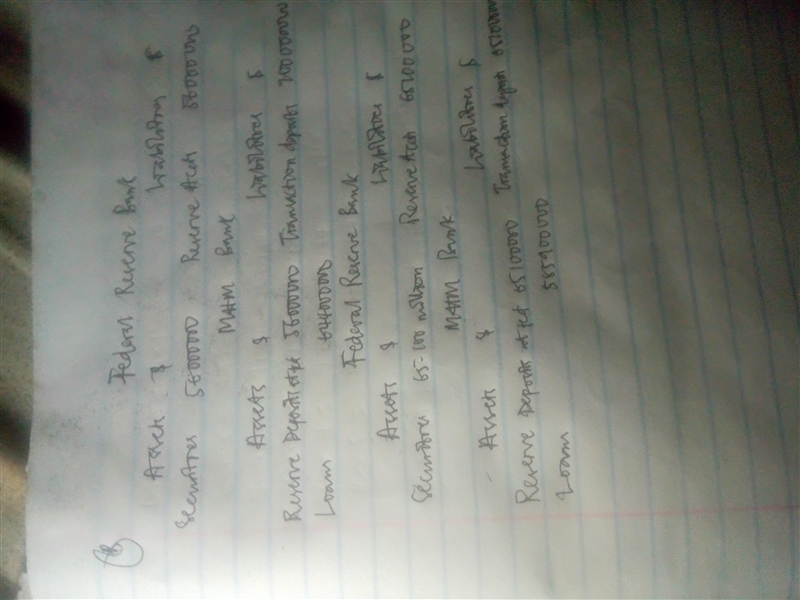 (B)
Federal Reserve Bank
Assets $ Liabilities $
Securities 5600000 Reserve Acct 5600000
M&M Bank
Assets $ Liabilities $
Reserve Deposits at Fed 5600000 Transaction deposits
Loans 64400000
Federal Reserve Bank
Assets $ Liabilities $
Securities 65-100 million Reserve Acct 65100000
Bank
Assets $ Liabilities $
Reserve Deposits at Fed 65100000 Transaction
Loans 585900000